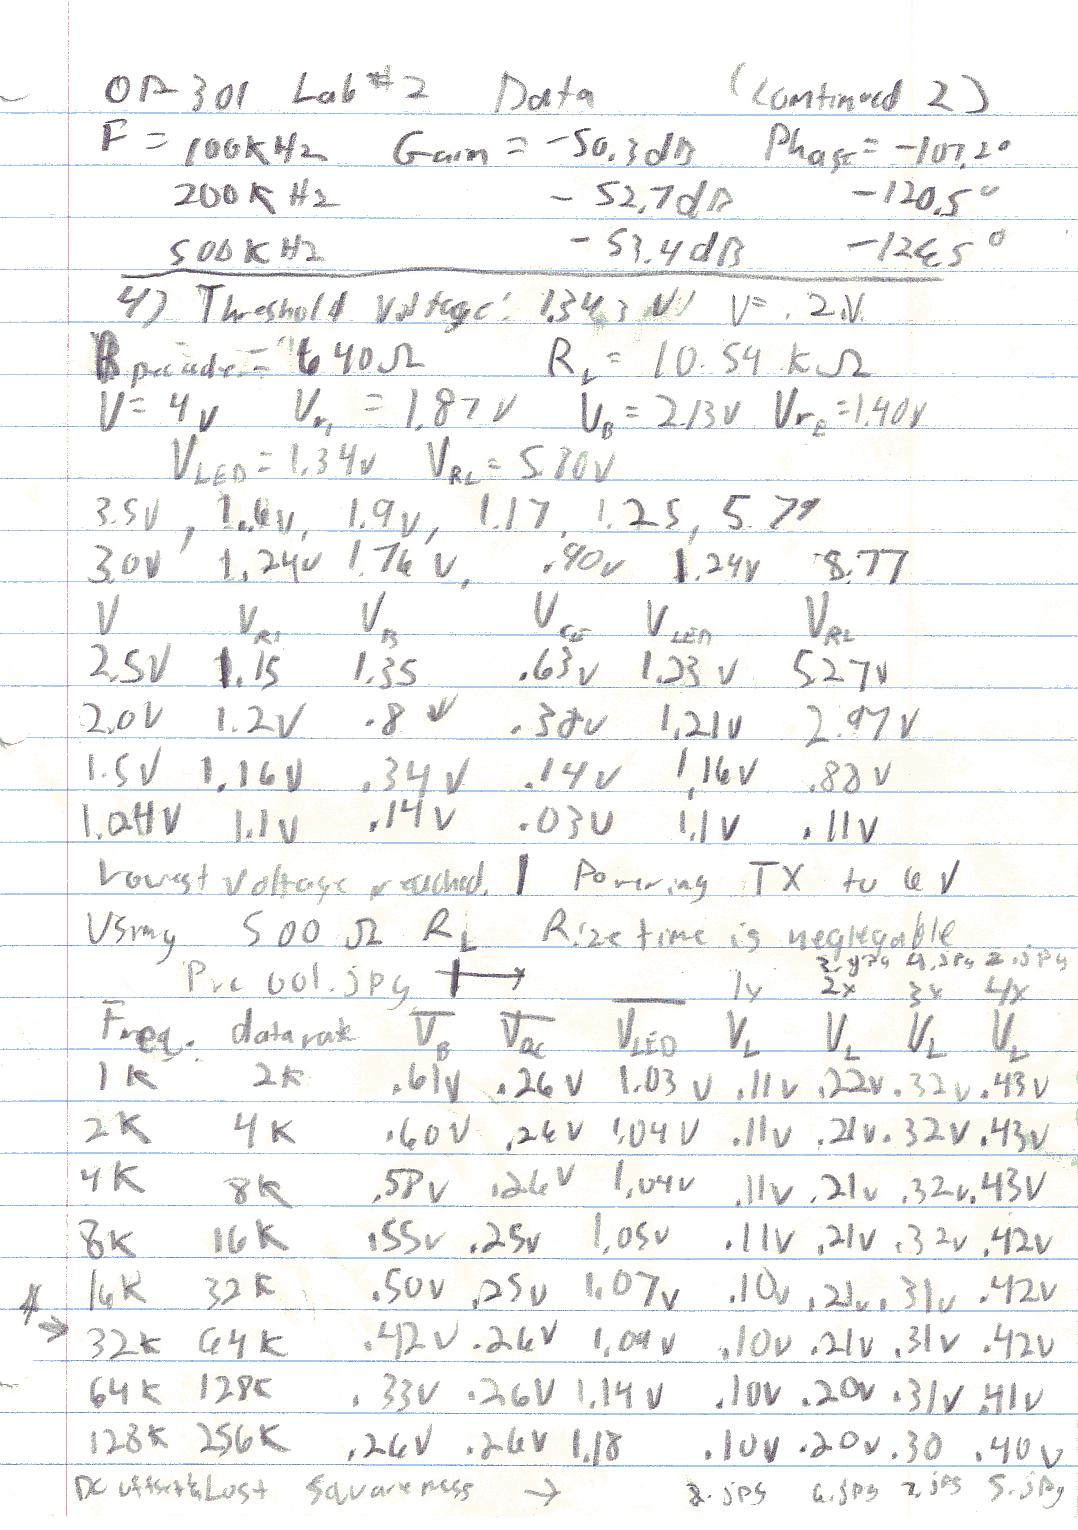 OP-301 Lab #2 Data (Continued 2)
F = 100KHz Gain = -50.3dB Phase = -107.2°
200KHz -52.7dB -120.5°
500KHz -53.4dB
4) Threshold Voltage: V= .2V
R_L = 10.54 kΩ
V= 4V V_r1 = 1.87V V_B = 2.13V V_rE = 1.40V
V_LED = 1.34V V_RL = 5.80V
3.5V, 1.6V, 1.9V, 1.17, 1.25, 5.79
3.0V 1.24V 1.76V, .90V 1.24V 8.77
V V_R1 V_B V_CE V_LED V_RL
2.5V 1.15 1.35 .63V 1.23V 5.27V
2.0V 1.2V .8V .38V 1.21V 2.97V
1.5V 1.16V .34V .14V 1.16V .88V
1.1V .14V .03V 1.1V .11V
Lowest Voltage reached. Powering TX to 6V
Using 500Ω R_L Rize time is neglegable
Pic 001.jpg 1x 2x 3x 4x
Freq. data rate V_B V_LED V_L V_L V_L V_L
1K 2K .61V .26V 1.03V .11V .22V .32V .43V
2K 4K .60V .26V 1.04V .11V .21V .32V .43V
4K 8K .58V .26V 1.04V .11V .21V .32V .43V
8K 16K .55V .25V 1.05V .11V .21V .32V .42V
16K 32K .50V .25V 1.07V .10V .21V .31V .42V
32K 64K .42V .26V 1.09V .10V .21V .31V .42V
64K 128K .33V .26V 1.14V .10V .20V .31V .41V
128K 256K .26V .26V 1.18 .10V .20V .30 .40V
DC offset & Lost Squareness → 8.jpg 6.jpg 7.jpg 5.jpg